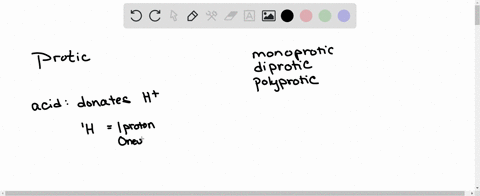 Protic
monoprotic
diprotic
polyprotic
acid: donates H⁺
¹H = 1 proton
0 neu